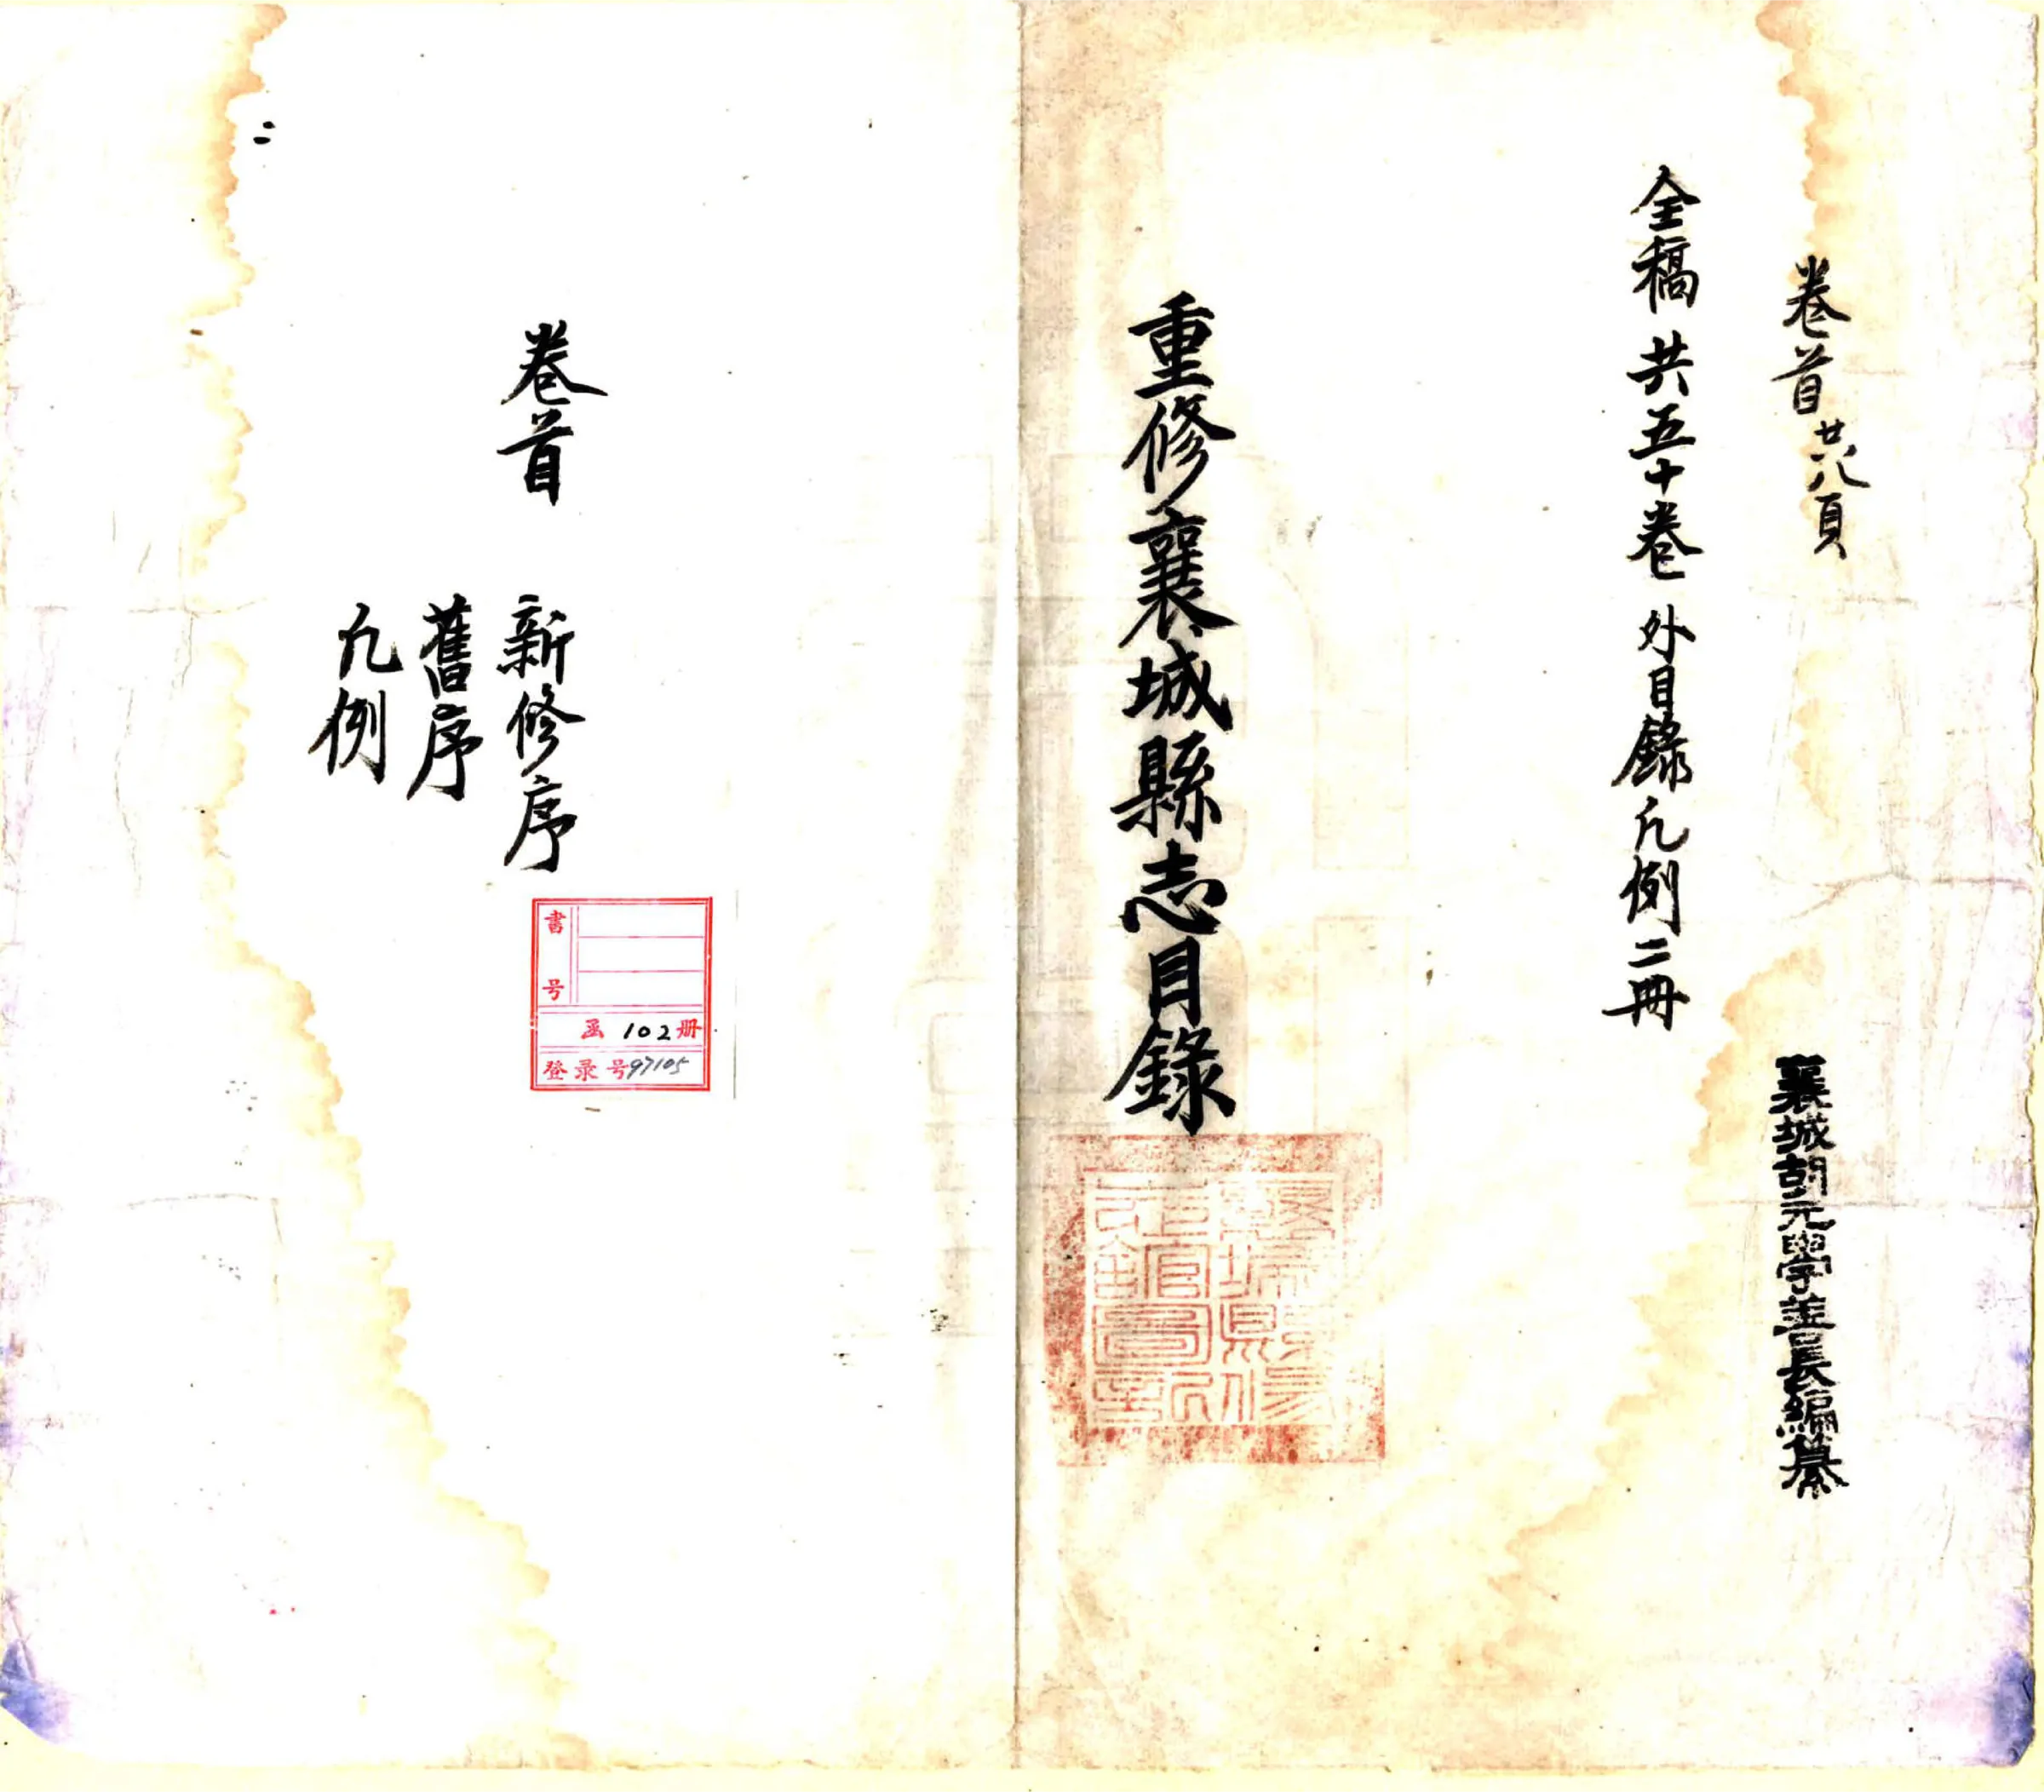 卷首 廿八頁
全稿 共五十卷 外目錄凡例二冊
襄城胡元學善長編纂
重修襄城縣志目錄
卷首 新修序
舊序
凡例
書号
函 102 册
登录号 97105